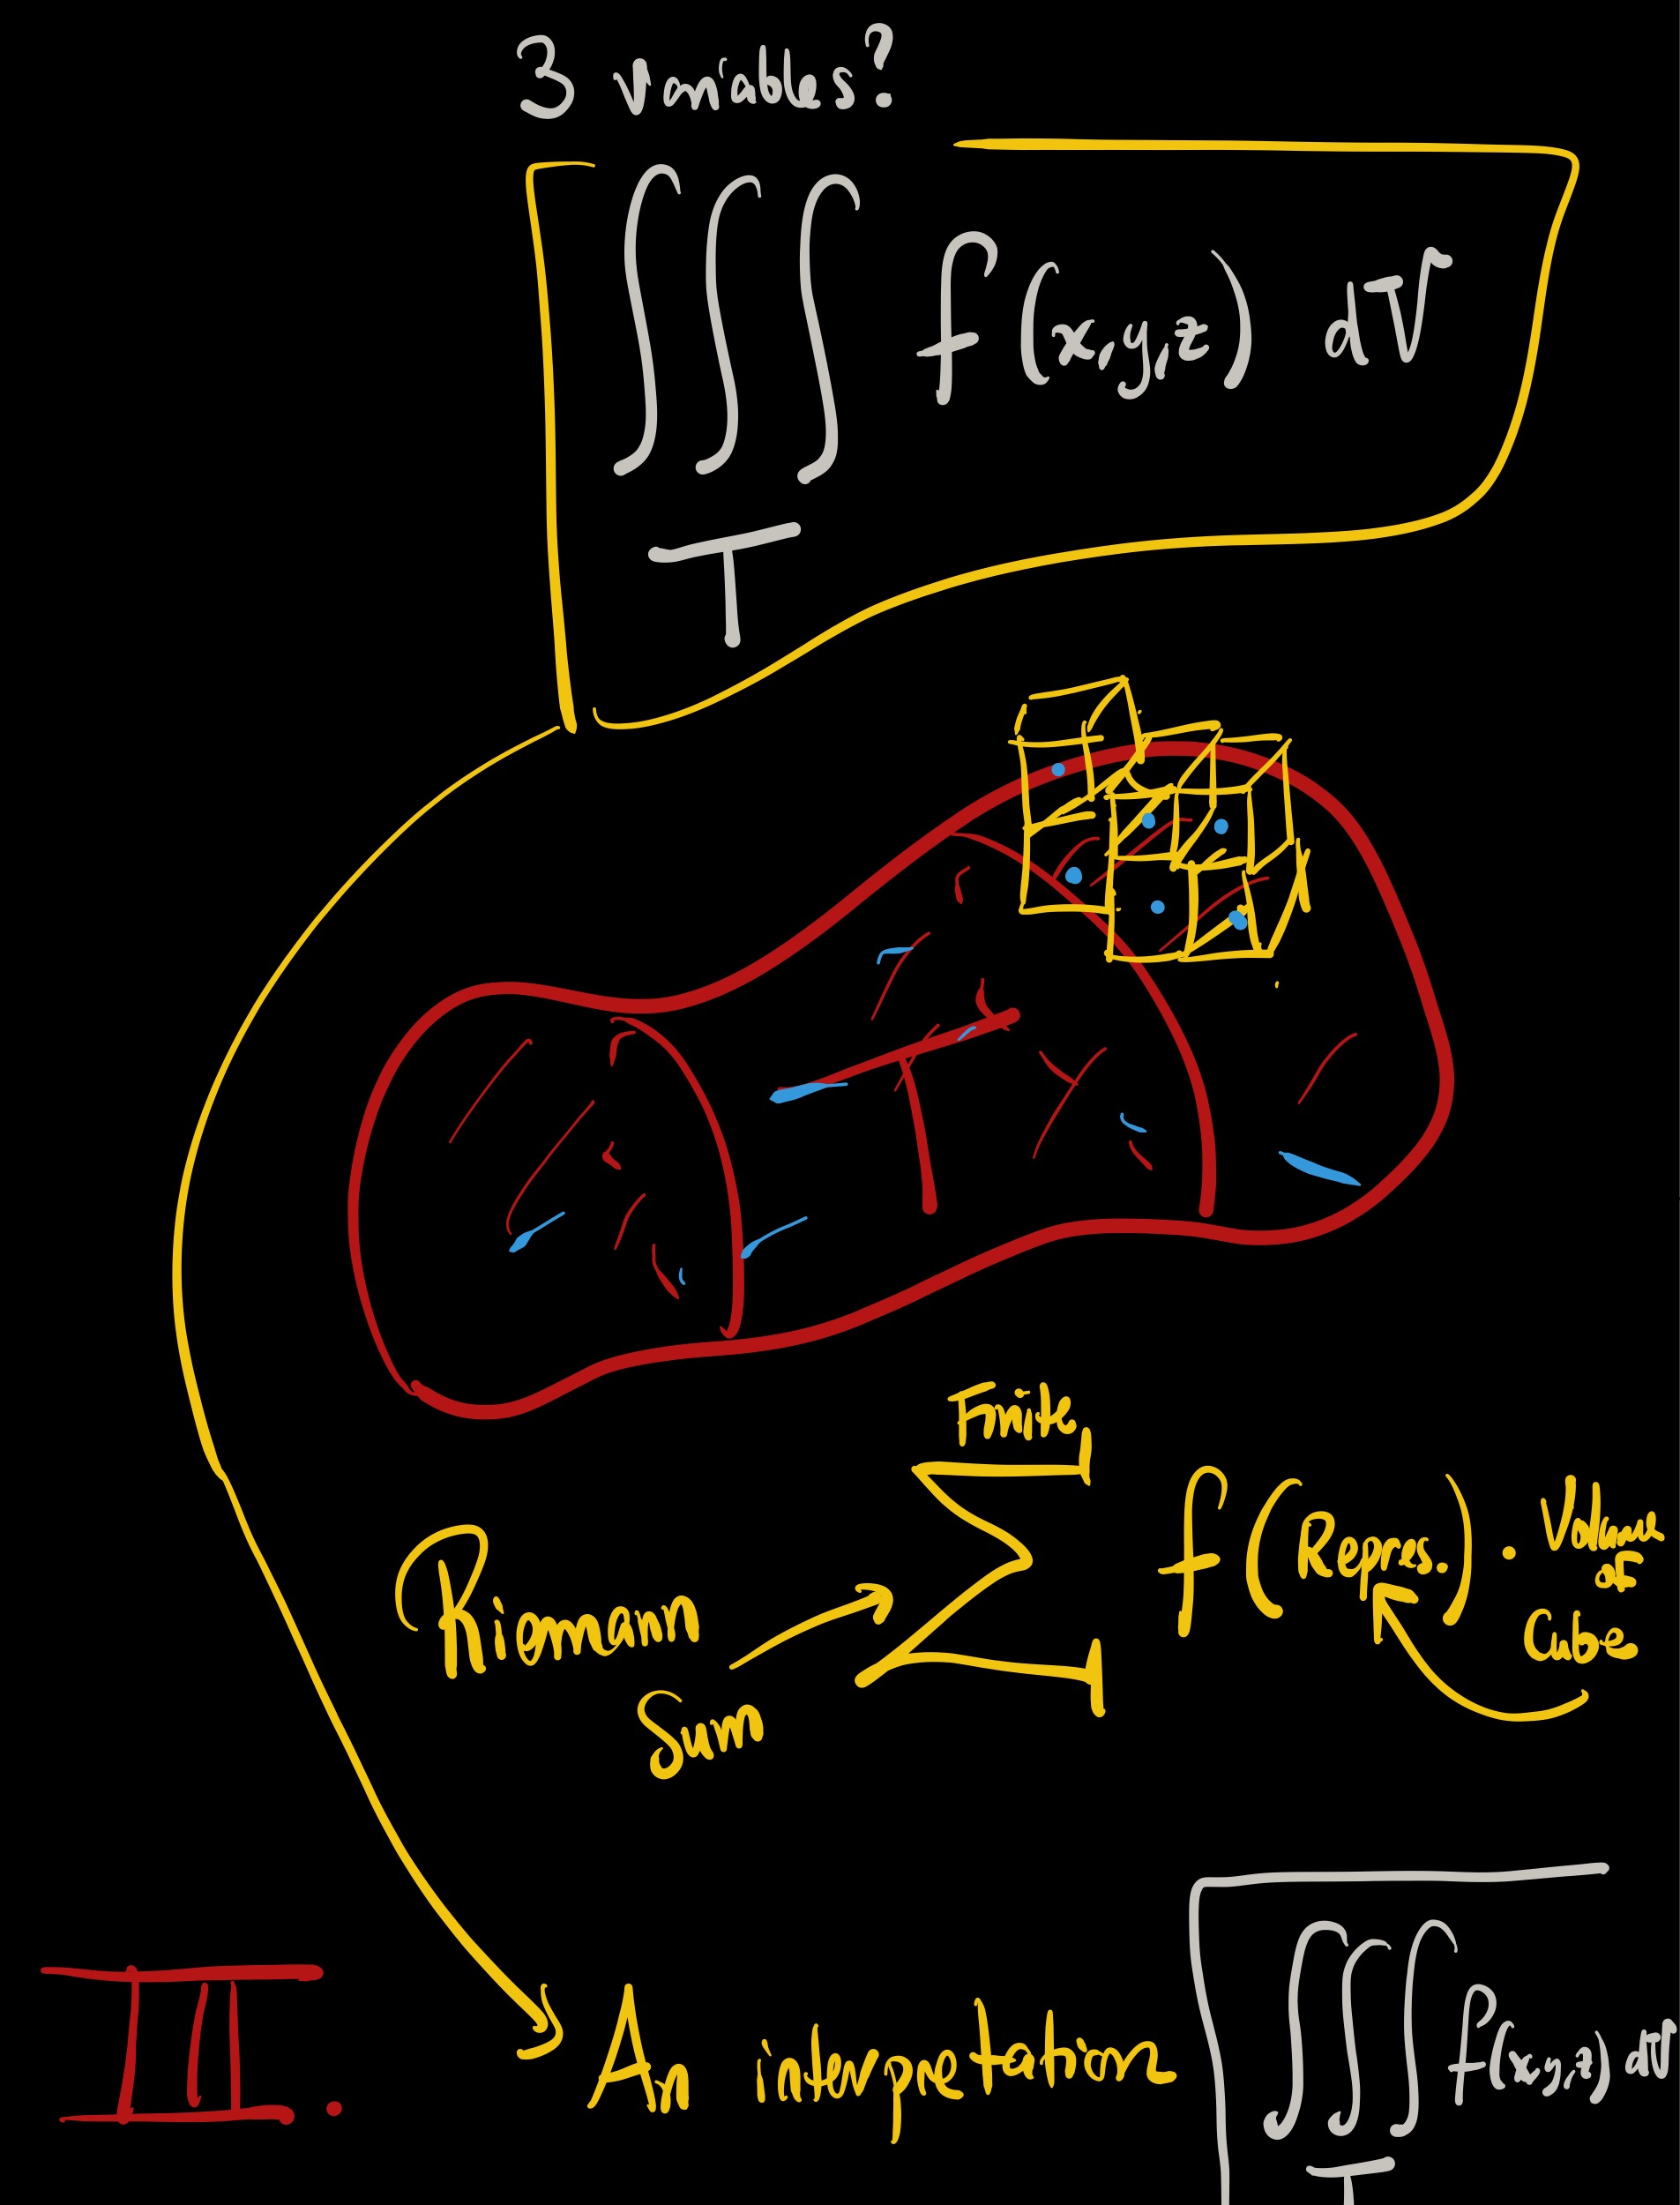 3 variables?
∭ f(x,y,z) dV
T
T
Finite
Riemann
Sum
Σ f(Repres.) · Volume
of
Cube
III.
An interpretation
∭ f(x,y,z) dV
T